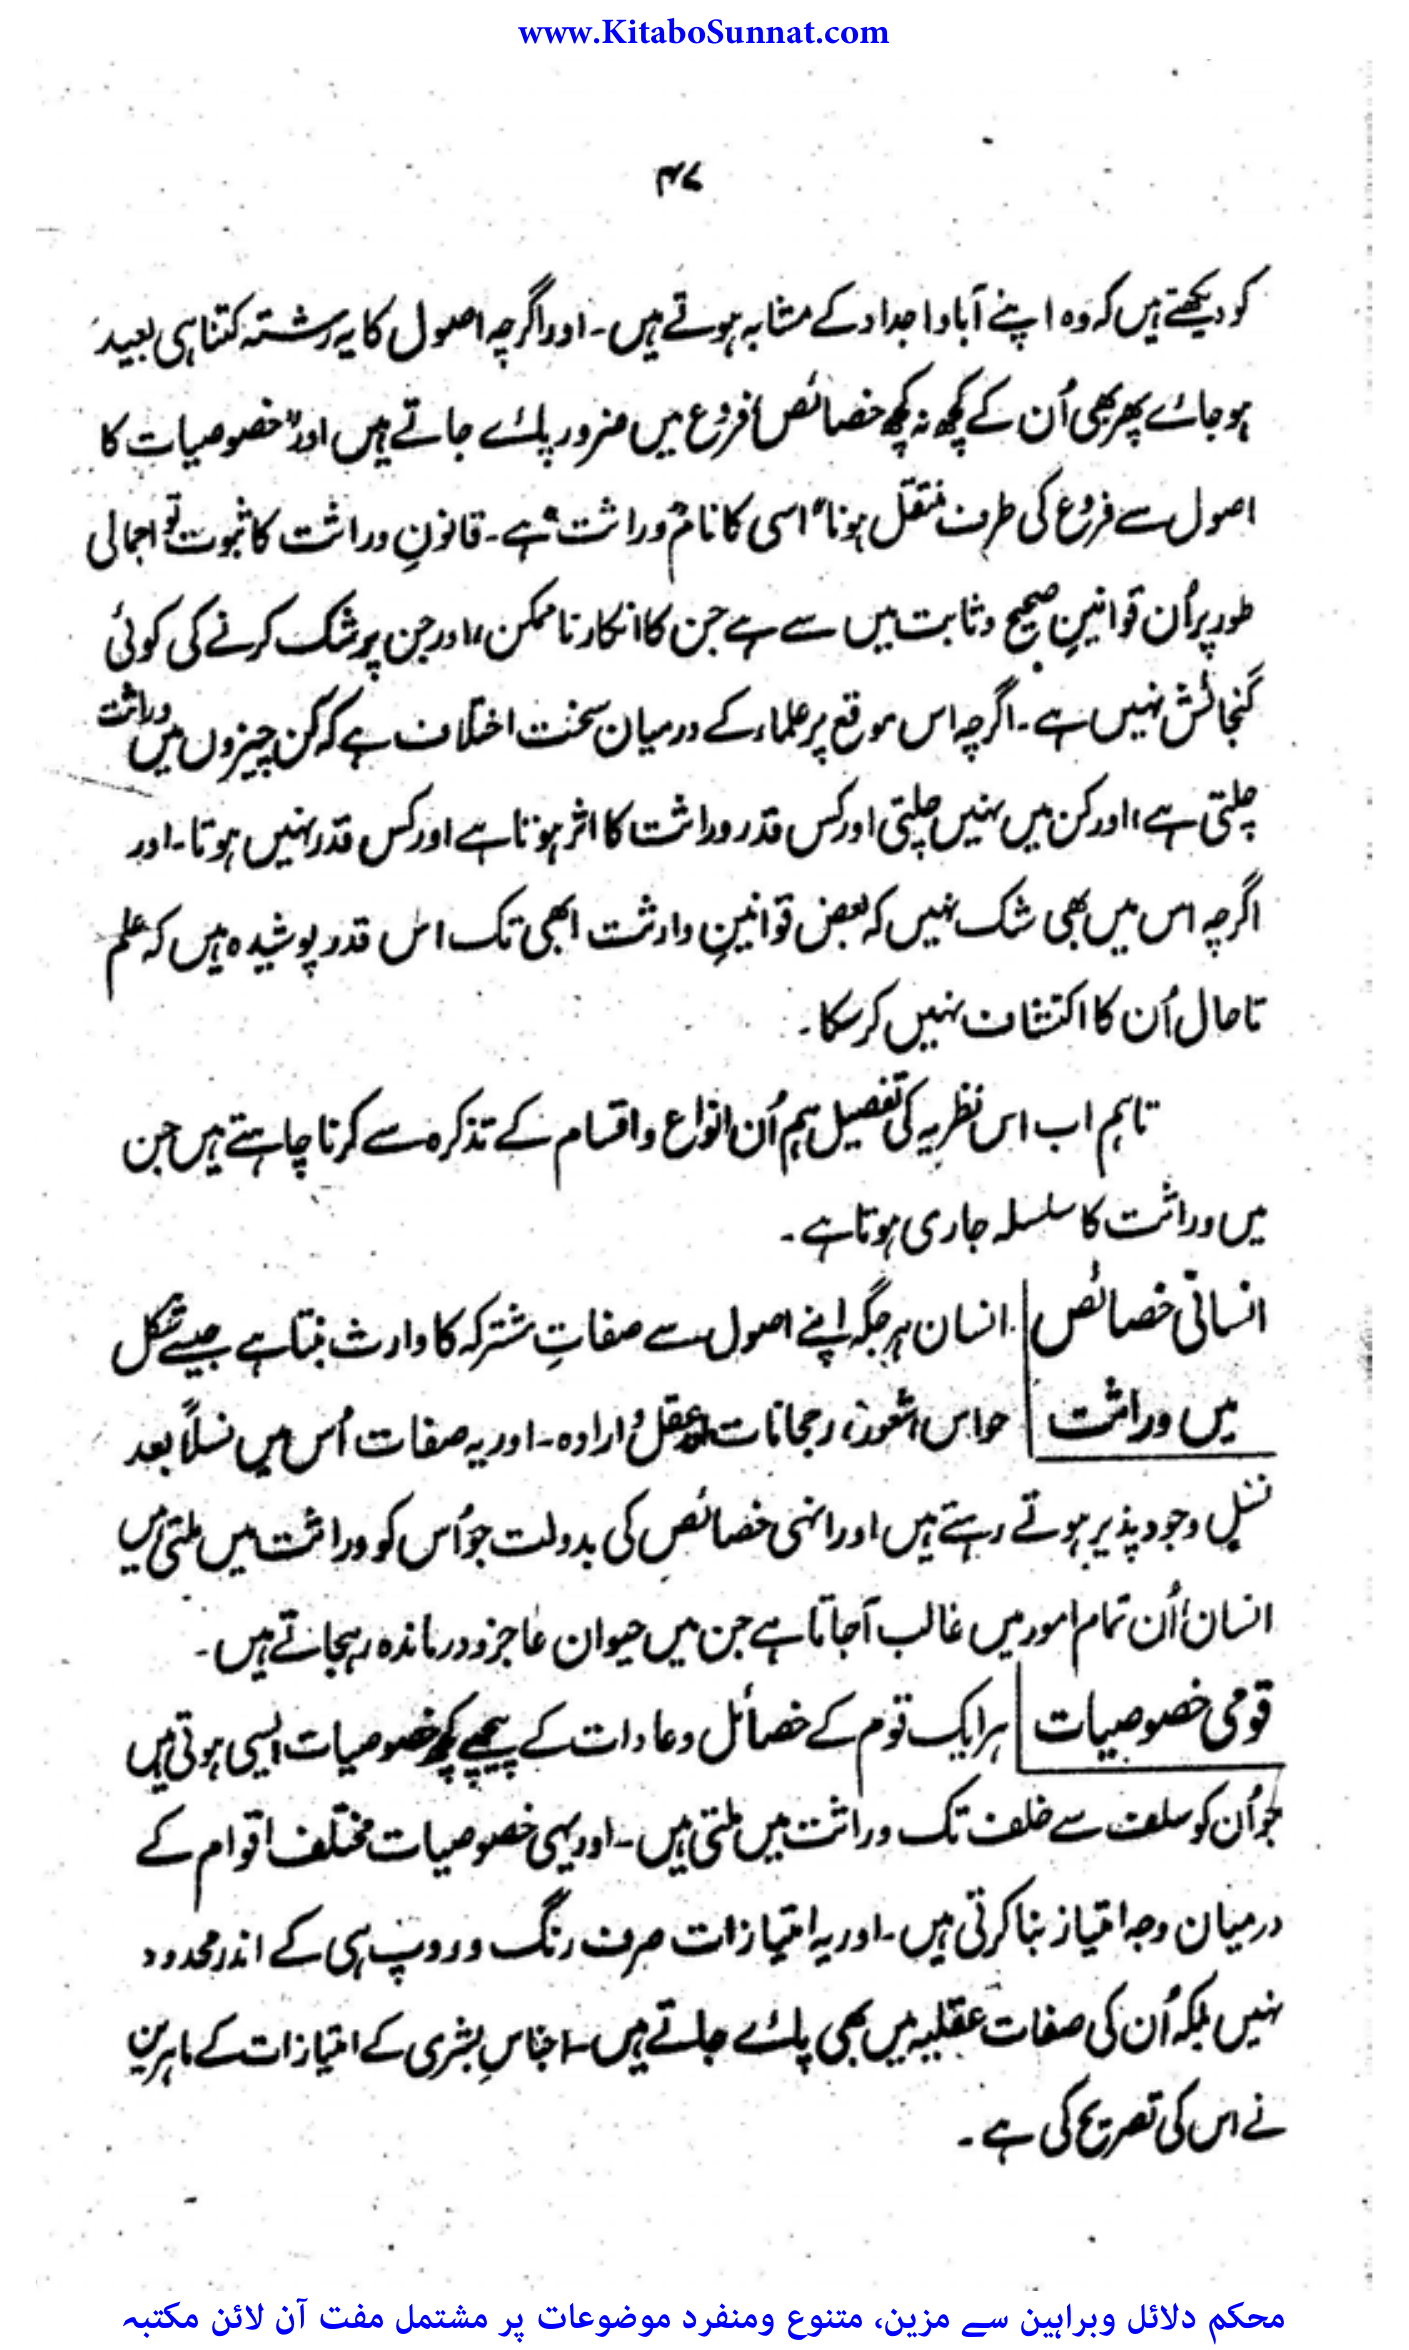 www.KitaboSunnat.com
۴۷
کو دیکھتے ہیں کہ وہ اپنے آباو اجداد کے مشابہ ہوتے ہیں۔ اور اگرچہ اصول کا یہ رشتہ کتنا ہی بعید
ہو جائے پھر بھی اُن کے کچھ نہ کچھ خصائص فروع میں ضرور پائے جاتے ہیں اور "خصوصیات کا
اصول سے فروع کی طرف منتقل ہونا" اسی کا نام "وراثت" ہے۔ قانونِ وراثت کا ثبوت تو اجمالی
طور پر اُن قوانینِ صحیح و ثابت میں سے ہے جن کا انکار ناممکن، اور جن پر شک کرنے کی کوئی
گنجائش نہیں ہے۔ اگرچہ اس موقع پر علماء کے درمیان سخت اختلاف ہے کہ کن چیزوں میں وراثت
چلتی ہے، اور کن میں نہیں چلتی اور کس قدر وراثت کا اثر ہوتا ہے اور کس قدر نہیں ہوتا۔ اور
اگرچہ اس میں بھی شک نہیں کہ بعض قوانینِ وارثت ابھی تک اس قدر پوشیدہ ہیں کہ علم
تا حال اُن کا اکتشاف نہیں کر سکا۔
تاہم اب اس نظریہ کی تفصیل ہم اُن انواع و اقسام کے تذکرہ سے کرنا چاہتے ہیں جن
میں وراثت کا سلسلہ جاری ہوتا ہے۔
انسانی خصائص انسان ہر جگہ اپنے اصول سے صفاتِ مشترکہ کا وارث بنتا ہے جیسے شکل
میں وراثت حواس، شعور، رجحانات اور عقل و ارادہ۔ اور یہ صفات اُس میں نسلاً بعد
نسلٍ وجود پذیر ہوتے رہتے ہیں اور انہی خصائص کی بدولت جو اُس کو وراثت میں ملتی ہیں
انسان اُن تمام امور میں غالب آجاتا ہے جن میں حیوان عاجز و درماندہ رہجاتے ہیں۔
قومی خصوصیات ہر ایک قوم کے خصائل و عادات کے پیچھے کچھ خصوصیات ایسی ہوتی ہیں
جو اُن کو سلف سے خلف تک وراثت میں ملتی ہیں۔ اور یہی خصوصیات مختلف اقوام کے
درمیان وجہ امتیاز بنا کرتی ہیں۔ اور یہ امتیازات صرف رنگ و روپ ہی کے اندر محدود
نہیں بلکہ اُن کی صفات عقلیہ میں بھی پائے جاتے ہیں۔ اجناسِ بشری کے امتیازات کے ماہرین
نے اس کی تصریح کی ہے۔
محکم دلائل وبراہین سے مزین، متنوع ومنفرد موضوعات پر مشتمل مفت آن لائن مکتبہ